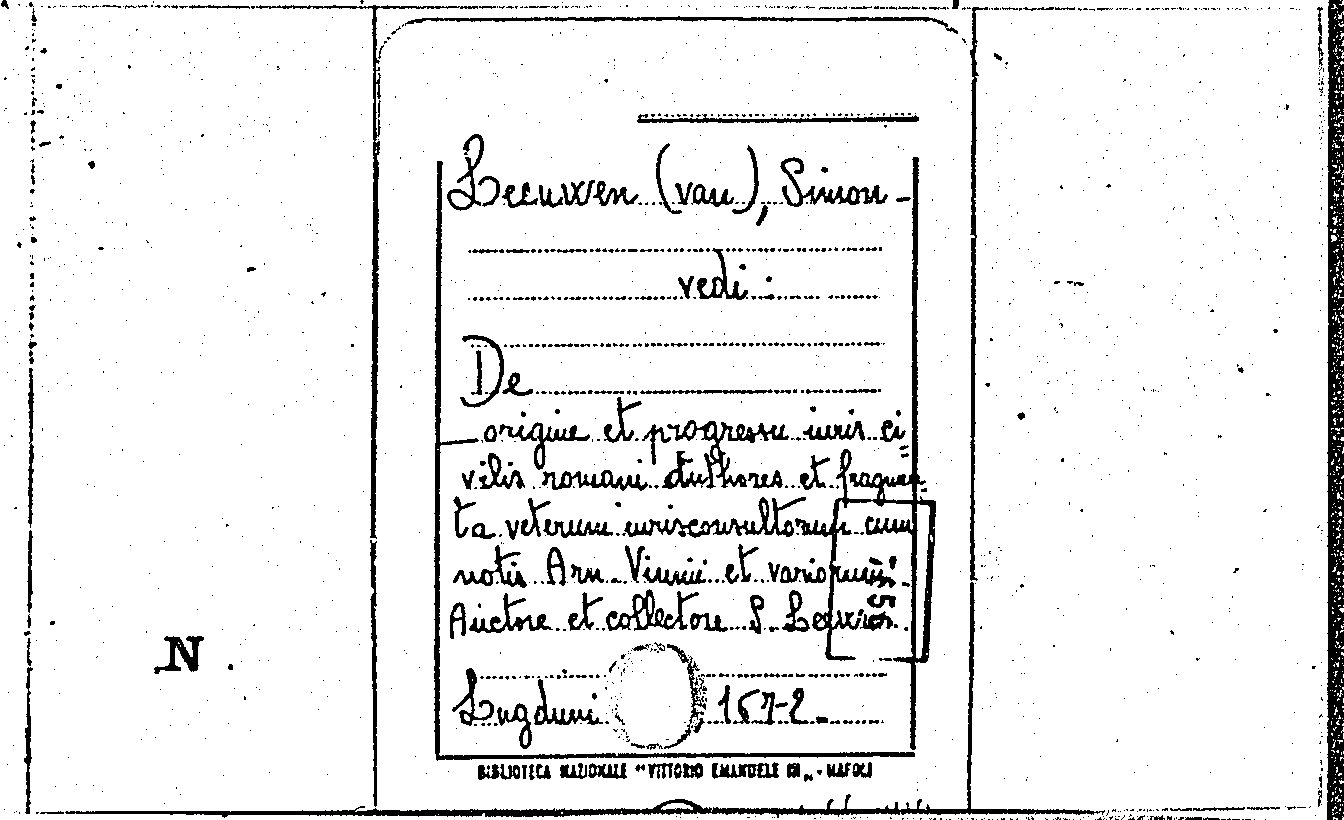 Leeuwen (van), Simon -
vedi :
De
origine et progressu iuris ci=
vilis romani Authores et fragmen=
ta veterum iurisconsultorum cum
notis Arn. Vinnii et variorum.
Auctore et collectore S. Leewen.
Lugduni 1672.
N.
BIBLIOTECA NAZIONALE "VITTORIO EMANUELE III" - NAPOLI